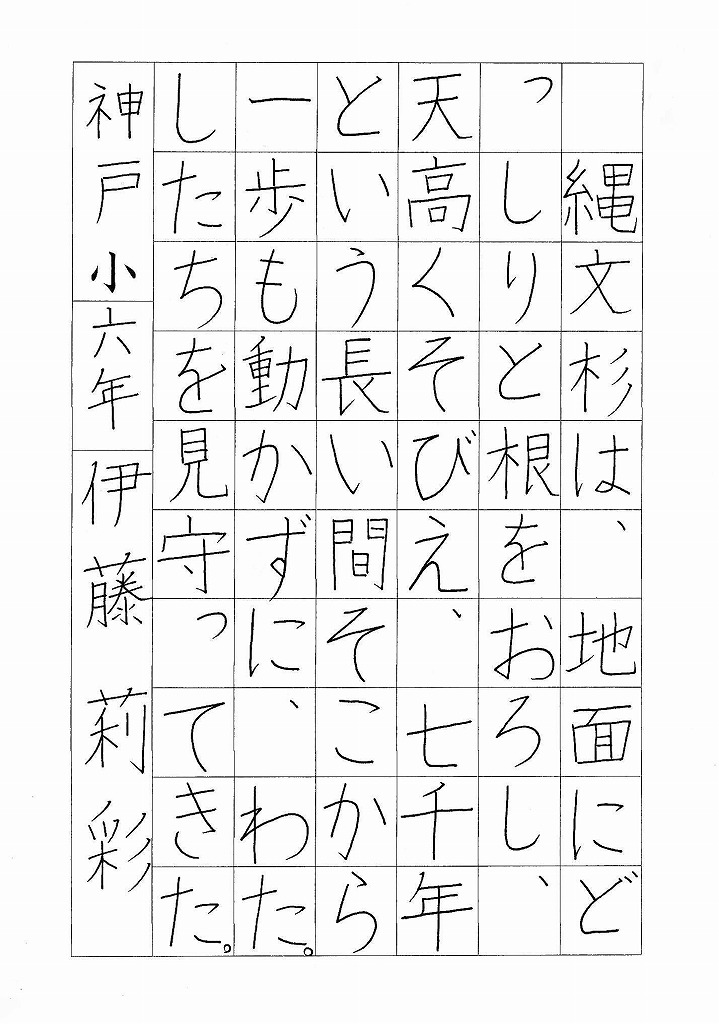 縄文杉は、地面にど
っしりと根をおろし、
天高くそびえ、七千年
という長い間そこから
一歩も動かずに、わた。
したちを見守ってきた。
神戸小六年伊藤莉彩